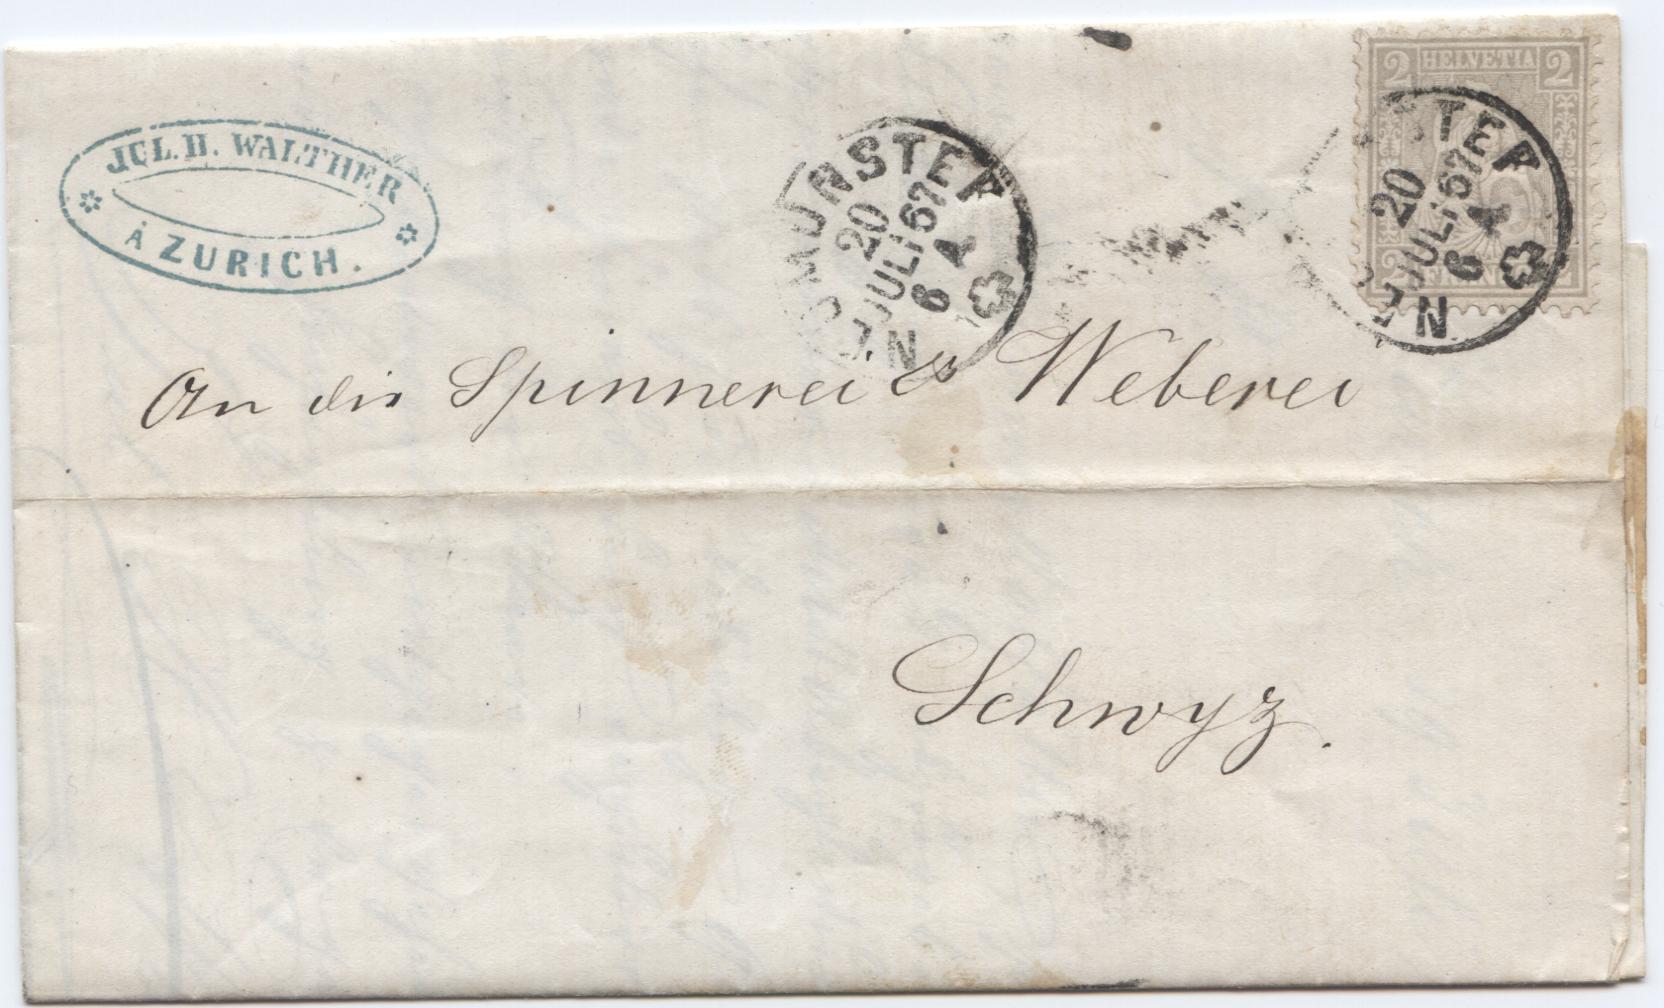 JUL. H. WALTHER
À ZURICH.
NEUMÜNSTER
20
JULI 67
6 A
2 HELVETIA 2
NEUMÜNSTER
20
JULI 67
6 A
2
An die Spinnerei & Weberei
Schwyz.